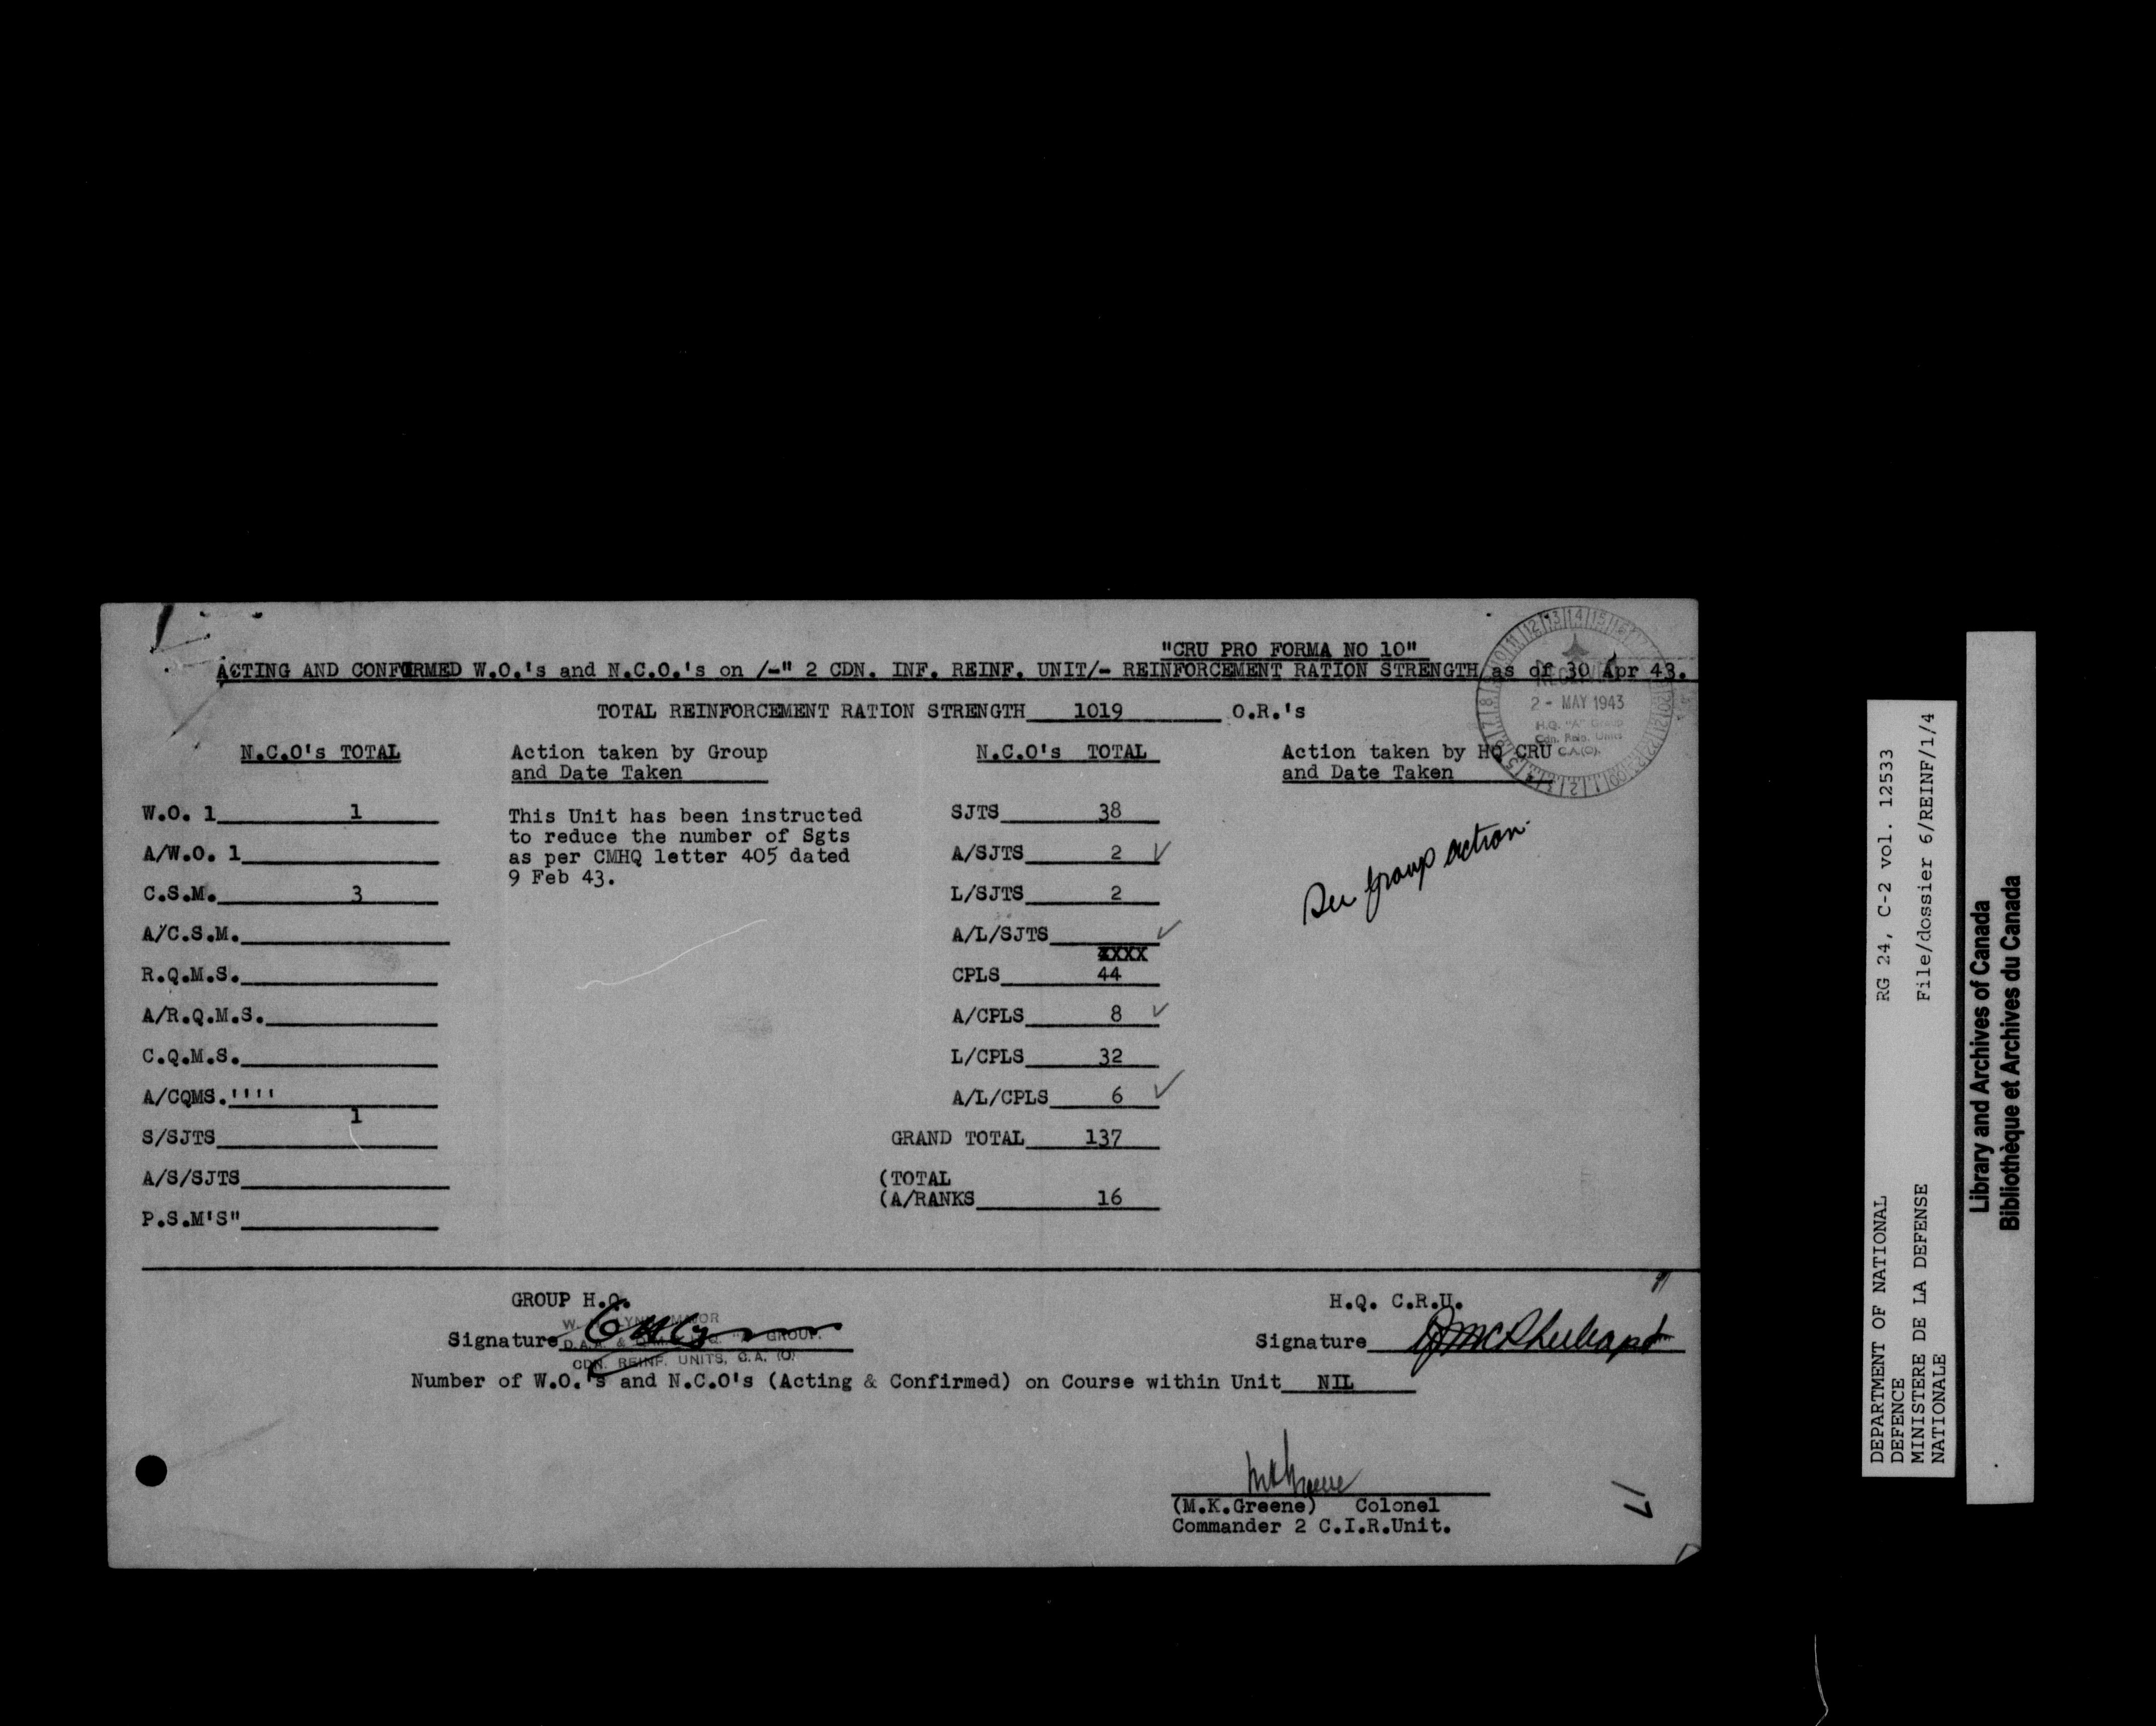 "CRU PRO FORMA NO 10"
ACTING AND CONFIRMED W.O.'s and N.C.O.'s on /-" 2 CDN. INF. REINF. UNIT/- REINFORCEMENT RATION STRENGTH as of 30 Apr 43.
TOTAL REINFORCEMENT RATION STRENGTH 1019 O.R.'s
RECEIVED
2 - MAY 1943
H.Q. "A" Group
Cdn. Rein. Units
C.A.(O).
N.C.O's TOTAL
W.O. 1 1
A/W.O. 1
C.S.M. 3
A/C.S.M.
R.Q.M.S.
A/R.Q.M.S.
C.Q.M.S.
A/CQMS.''''
1
S/SJTS
A/S/SJTS
P.S.M'S"
Action taken by Group
and Date Taken
This Unit has been instructed
to reduce the number of Sgts
as per CMHQ letter 405 dated
9 Feb 43.
N.C.O's TOTAL
SJTS 38
A/SJTS 2 ✓
L/SJTS 2
A/L/SJTS ✓
XXXX
CPLS 44
A/CPLS 8 ✓
L/CPLS 32
A/L/CPLS 6 ✓
GRAND TOTAL 137
(TOTAL
(A/RANKS 16
Action taken by HQ CRU
and Date Taken
See group action.
GROUP H.Q.
Signature
MAJOR
D.A.A. & Q.M.G. H.Q. "A" GROUP.
CDN. REINF. UNITS, C.A. (O)
H.Q. C.R.U.
Signature
Number of W.O.'s and N.C.O's (Acting & Confirmed) on Course within Unit NIL
MKGreene
(M.K.Greene) Colonel
Commander 2 C.I.R.Unit.
17
DEPARTMENT OF NATIONAL
DEFENCE
MINISTERE DE LA DEFENSE
NATIONALE
RG 24, C-2 vol. 12533
File/dossier 6/REINF/1/4
Library and Archives of Canada
Bibliothèque et Archives du Canada